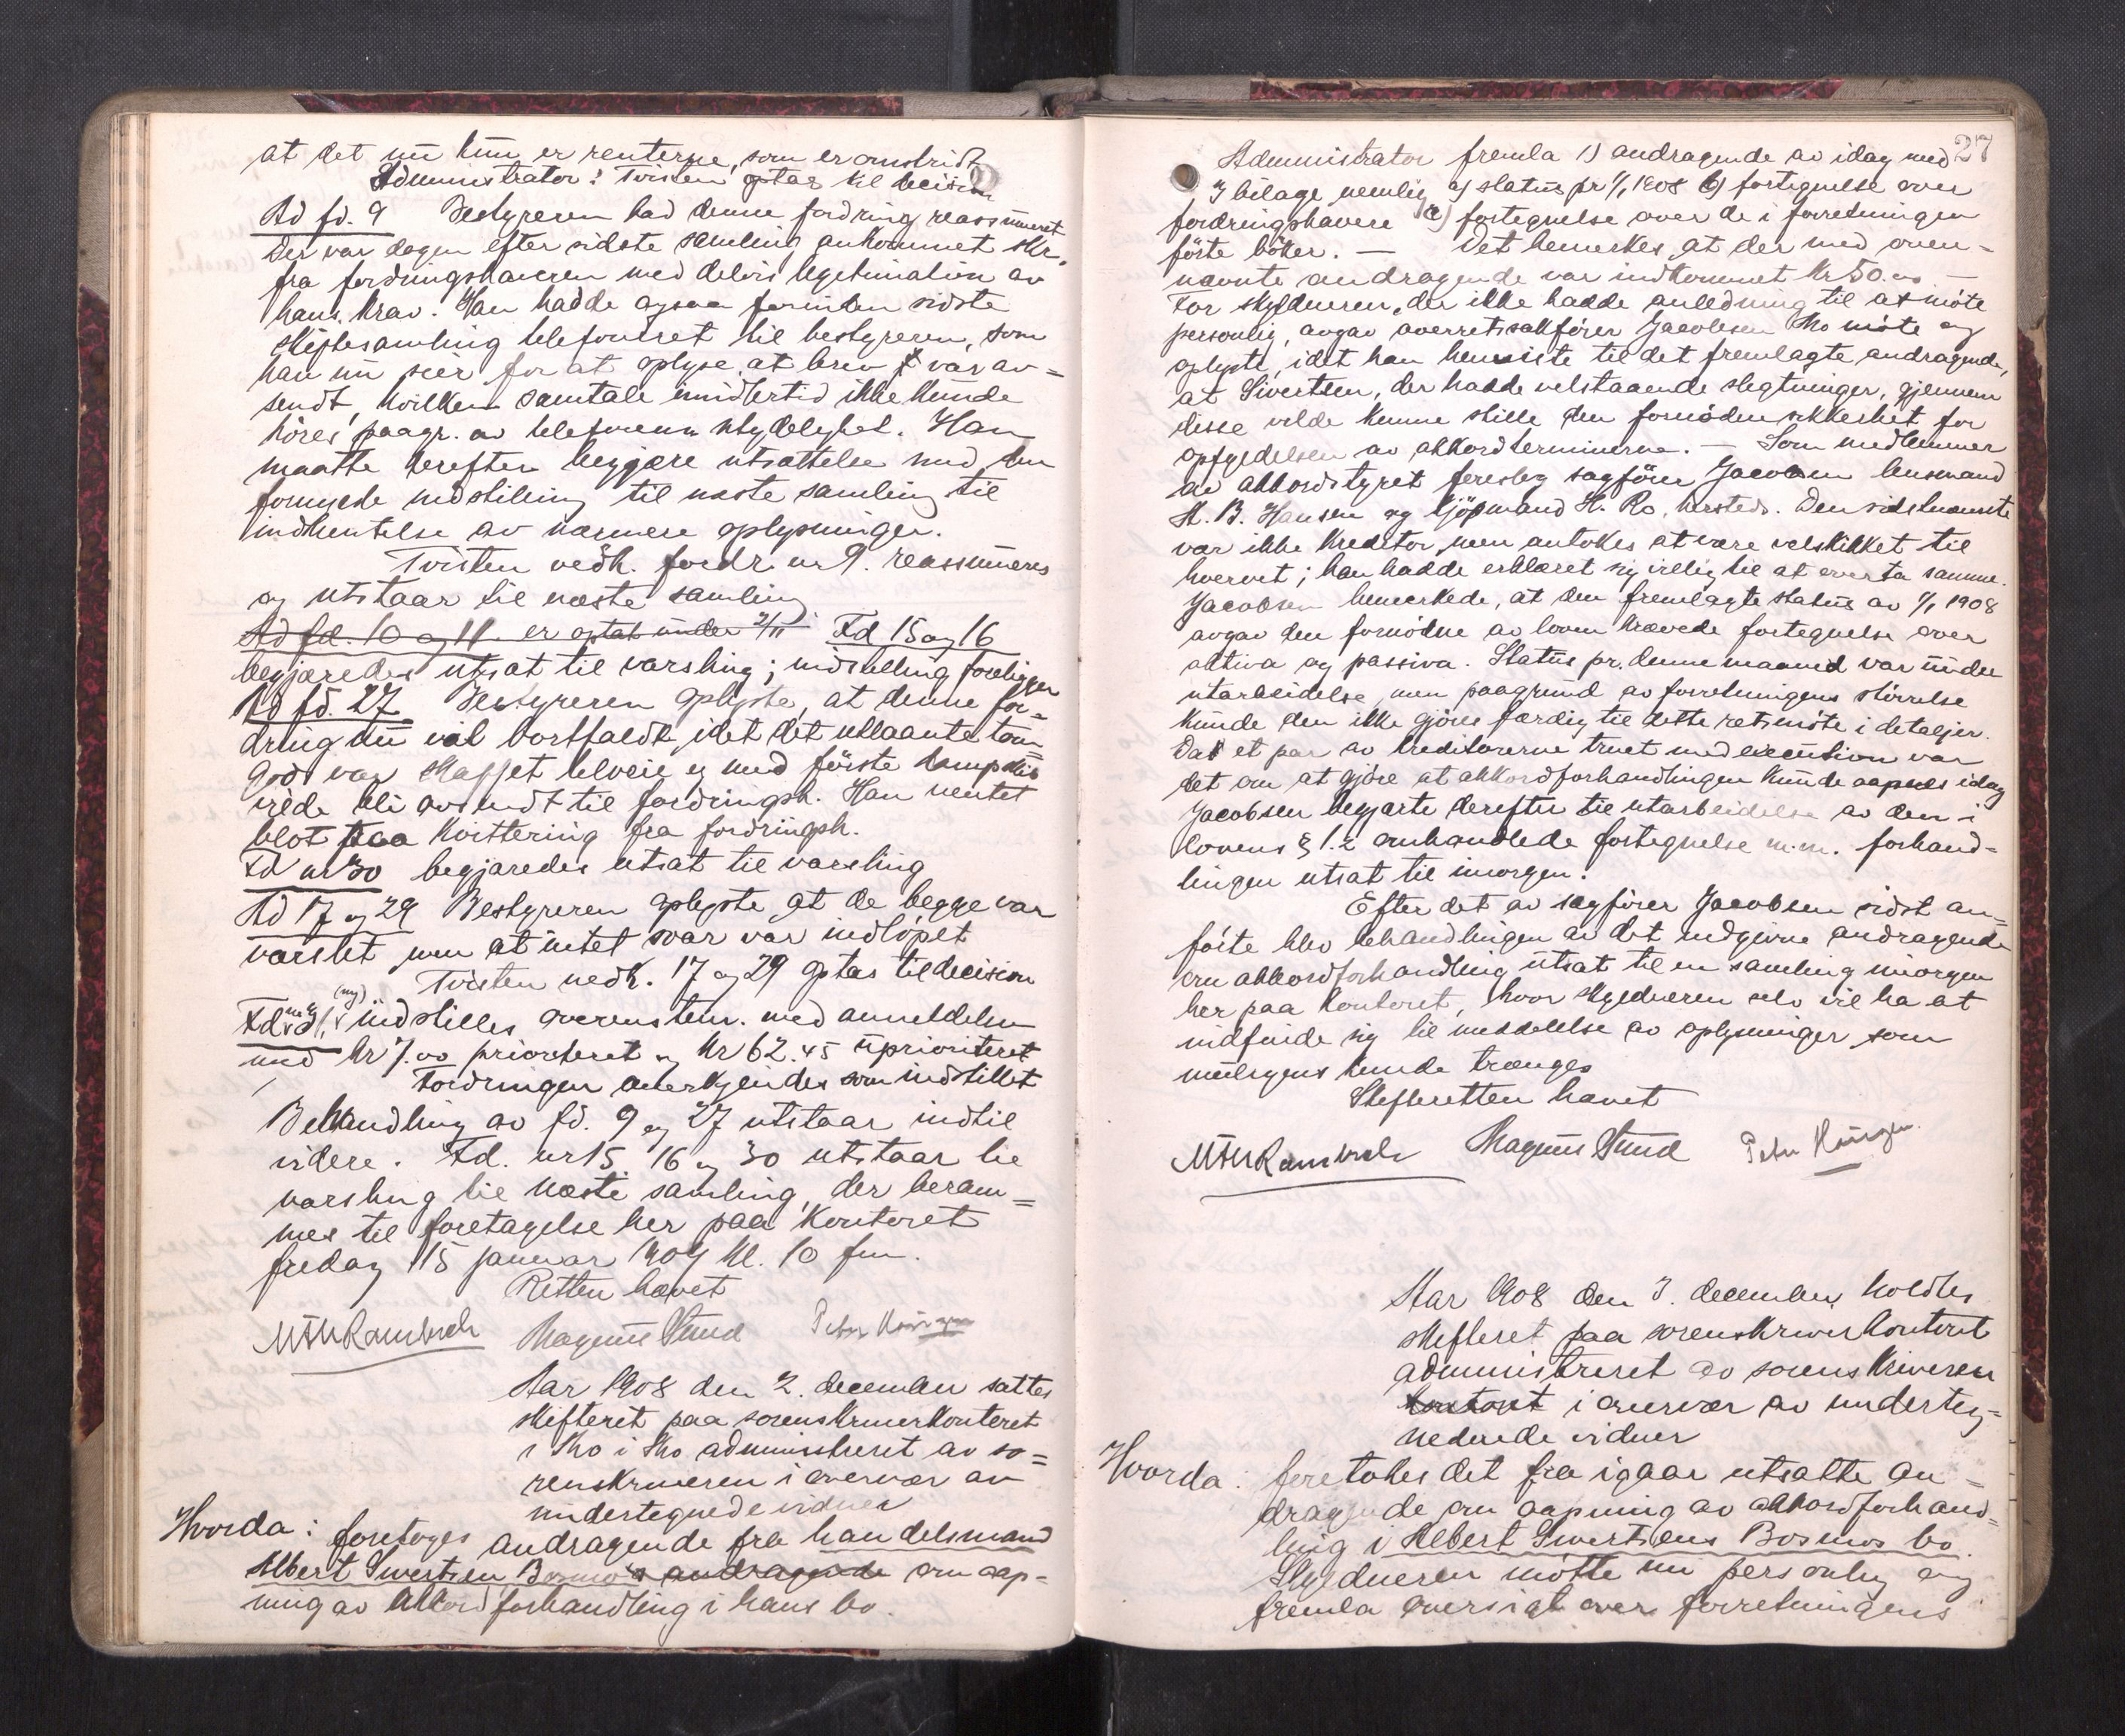 at det nu kun er renterne, som er omstridt
Administrator: Tvisten optas til decision
Ad fd. 9 Bestyreren bad denne fordring reassumeret
Der var dagen efter sidste samling ankommet skr.
fra fordringshaveren med delvis legitimation av
hans krav. Han hadde ogsaa forinden sidste
skiftesamling telefoneret til bestyreren, som
han nu sier for at oplyse at brev var av=
sendt, hvilken samtale imidlertid ikke kunde
høres paagr. av telefonens utydelighet. Han
maatte derefter begjære utsættelse med den
fornyede indstilling til næste samling til
indhentelse av nærmere oplysninger.
Tvisten vedk. fordr. nr 9. reassumeres
og utstaar til næste samling
Ad fd. 10 og 11 er optat under 2/11 Fd 15 og 16
begjæredes utsat til varsling; indstilling foreligger
Ad fd. 27 Bestyreren oplyste, at denne for=
dring nu vil bortfaldt, idet det utlaante tom=
gods var skaffet tilveie og med første dampskib
vilde bli avsendt til fordringsh. Han ventet
blot paa kvittering fra fordringsh.
Fd nr 30 begjæredes utsat til varsling
Ad 17 og 29 Bestyreren oplyste at de begge var
varslet men at intet svar var indløpet
Tvisten vedk. 17 og 29 optas til decision
Fd nr 31 (ny) indstilles overenstem. med anmeldelsen
med kr 7.00 prioriteret og kr 62.45 uprioriteret
Fordringen anerkjendes som indstillet
Behandling av fd. 9 og 27 utstaar indtil
videre. Fd. nr 15 16 og 30 utstaar til
varsling til næste samling, der beram=
mes til foretagelse her paa kontoret
fredag 15 januar 1909 kl. 10 fm.
Retten hævet
Magnus Lund
Aar 1908 den 2. december sattes
skifteret paa sorenskriverkontoret
i Mo i Mo administreret av so=
renskriveren i overvær av
undertegnede vidner
Hvorda: foretoges andragende fra handelsmand
Albert Sivertsen Bosmo's andragende om aap=
ning av akkordforhandling i hans bo.
27
Administrator fremla 1) andragende av idag med
3 bilage nemlig a) status pr 1/1 1908 b) fortegnelse over
fordringshavere c) fortegnelse over de i forretningen
førte bøker. — Det bemerkes at der med oven=
nævnte andragende var indkommet kr 50.00 —
For skyldneren, der ikke hadde anledning til at møte
personlig, avgav overretssakfører Jacobsen Mo møte og
oplyste, idet han henviste til det fremlagte andragende,
at Sivertsen, der hadde velstaaende slegtninger, gjennem
disse vilde kunne stille den fornødne sikkerhet for
opfyldelsen av akkordterminerne. — Som medlemmer
av akkordstyret foreslog sagfører Jacobsen lensmand
H. B. Hansen og kjøpmand H. Ro, hersteds. Den sidstnævnte
var ikke kreditor, men antokes at være velskikket til
hvervet; han hadde erklæret sig villig til at overta samme.
Jacobsen bemerkede, at den fremlagte status av 1/1 1908
avgav den fornødne av loven krævede fortegnelse over
aktiva og passiva. Status pr. denne maaned var under
utarbeidelse, men paagrund av forretningens størrelse
kunde den ikke gjøres færdig til dette retsmøte i detaljer.
Da et par av kreditorerne truet med execution var
det om at gjøre at akkordforhandlingen kunde aapnes idag
Jacobsen begjærte derefter til utarbeidelse av den i
lovens § 1.2 omhandlede fortegnelse m.m. forhand=
lingen utsat til imorgen.
Efter det av sagfører Jacobsen sidst an=
førte blev behandlingen av det indgivne andragende
om akkordforhandling utsat til en samling imorgen
her paa kontoret, hvor skyldneren selv vil ha at
indfinde sig til meddelelse av oplysninger som
muligens kunde trænges
Skifteretten hævet
Magnus Lund
Aar 1908 den 3. december holdtes
skifteret paa sorenskriverkontoret
administreret av sorenskriveren
kontoret i overvær av underteg=
nedede vidner
Hvorda: foretokes det fra igaar utsatte an=
dragende om aapning av akkordforhand=
ling i Albert Sivertsens Bosmos bo.
Skyldneren møtte nu personlig og
fremla oversigt over forretningens